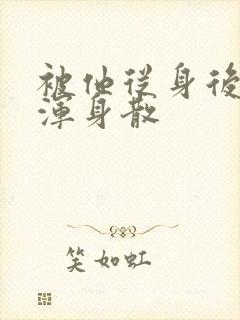 被他従身後
渾身散
笑如虹